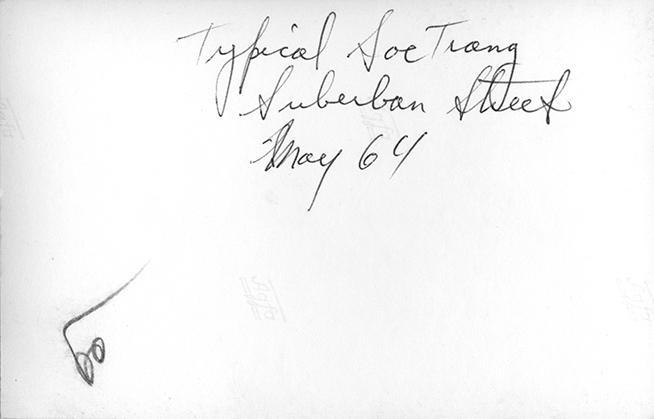 Typical Soc Trang
Suberban Street
May 64
60